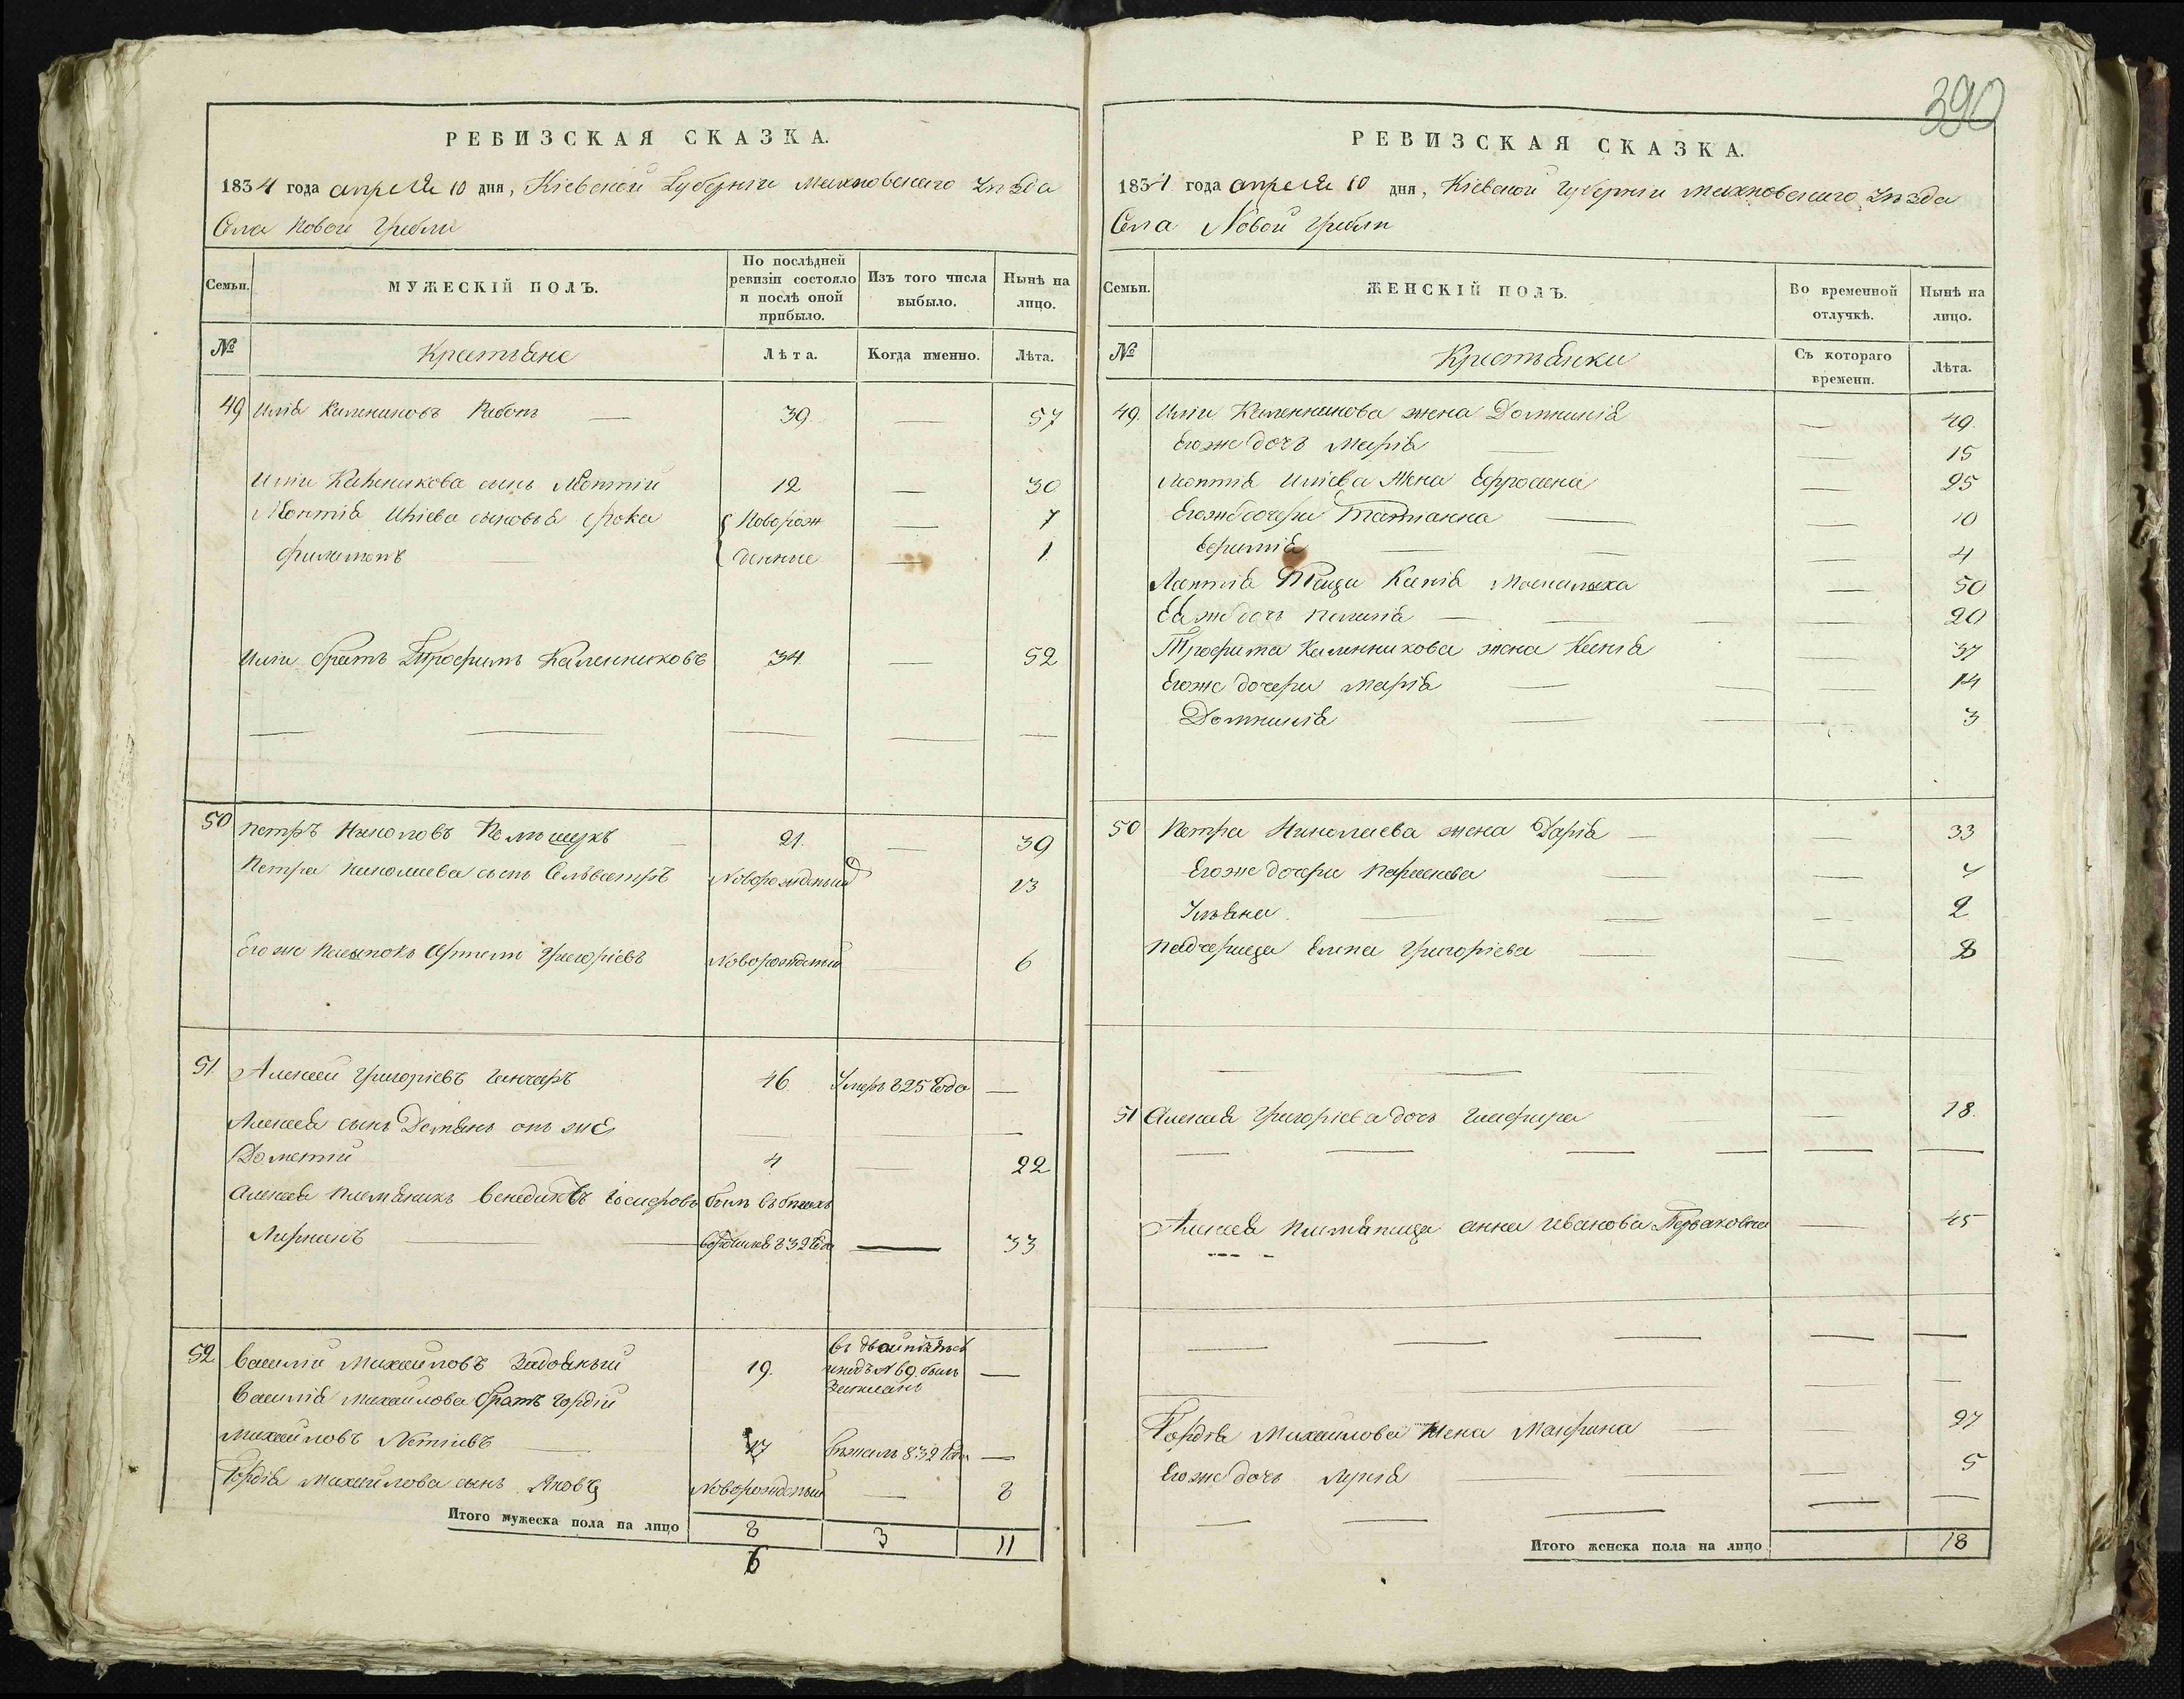 390
РЕВИЗСКАЯ СКАЗКА.
1834 года апреля 10 дня, Кіевской Губерніи Махновского Уѣзда
Села Новой Гребли
Семьи.
МУЖЕСКІЙ ПОЛЪ.
По послѣдней ревизіи состояло и послѣ оной прибыло.
Изъ того числа выбыло.
Нынѣ на лицо.
№ Крестьяне Лѣта. Когда именно. Лѣта.
49 Илія Калениковъ — 39 — 57
Иліи Каленикова сынъ Леонтій 12 — 30
Леонтія Иліева сыновья Фока Новорож — 7
Филимонъ — денние — 1
Иліи братъ Трофимъ Каленниковъ 34 — 52
50 Петръ Николовъ 21. — 39
Петра Николаева сынъ Сельвестръ Новорожденый 13
Его же пасынокъ Артемъ Григоріевъ Новорожденый 6
51. Алексей Григоріевъ Ганчаръ 46 Умеръ 825 года —
Алексея сынъ Демянъ онъ же — — —
Дометій 4 — 22
Алексея племяникъ Венедиктъ Іосифовъ былъ въ бѣгахъ
832 года — 33
52 Василій Михайловъ 19. №69. —
Василія Михайлова братъ Гордій
Михайловъ — 17 Бежалъ 832 года —
Гордія Михайлова сынъ Яковъ Новорожденый — 8
Итого мужеска пола на лицо 8 3 11
6
РЕВИЗСКАЯ СКАЗКА.
1834 года апреля 10 дня, Кіевской Губерніи Махновского Уѣзда
Села Новой Гребли
Семьи.
ЖЕНСКІЙ ПОЛЪ.
Во временной отлучкѣ.
Нынѣ на лицо.
№ Крестьянки Съ котораго времени. Лѣта.
49. Иліи Каленникова жена Домникія — 49.
Его же дочь Марія — 15
Леонтія Иліева жена Ефросина — 25
Его же дочери Татіанна — 10
— 4
Леонтія Ксенія — 50
Ея же дочь — 20
Трофима Каленникова жена Ксенія — 37
Его же дочери Марія — 14
Домникія — 3
50 Петра Николаева жена Дарія — 33
Его же дочери Параскева — 4
Ульяна — 2
Падчерица Елена Григоріева — 8
51 Алексея Григоріева дочь Глафира — 18.
Алексея племяница Анна Иванова — 45
Гордія Михайлова жена Макрина — 27
Его же дочь — 5
Итого женска пола на лицо 18